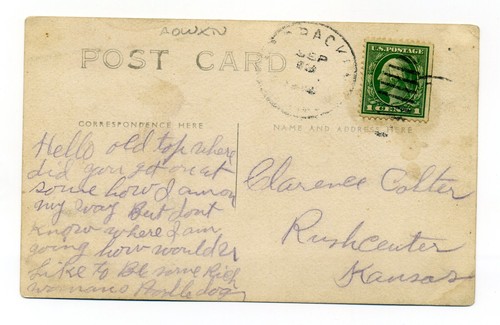 AOWKN
POST CARD
SEP
U.S. POSTAGE
CORRESPONDENCE HERE
NAME AND ADDRESS HERE
Hello old top where
did you get on at
some how I am on
my way But dont
know where I am
going how would u
Like to Be some Rich
womans Poodle dog
Clarence Colter
Rushcenter
Kansas